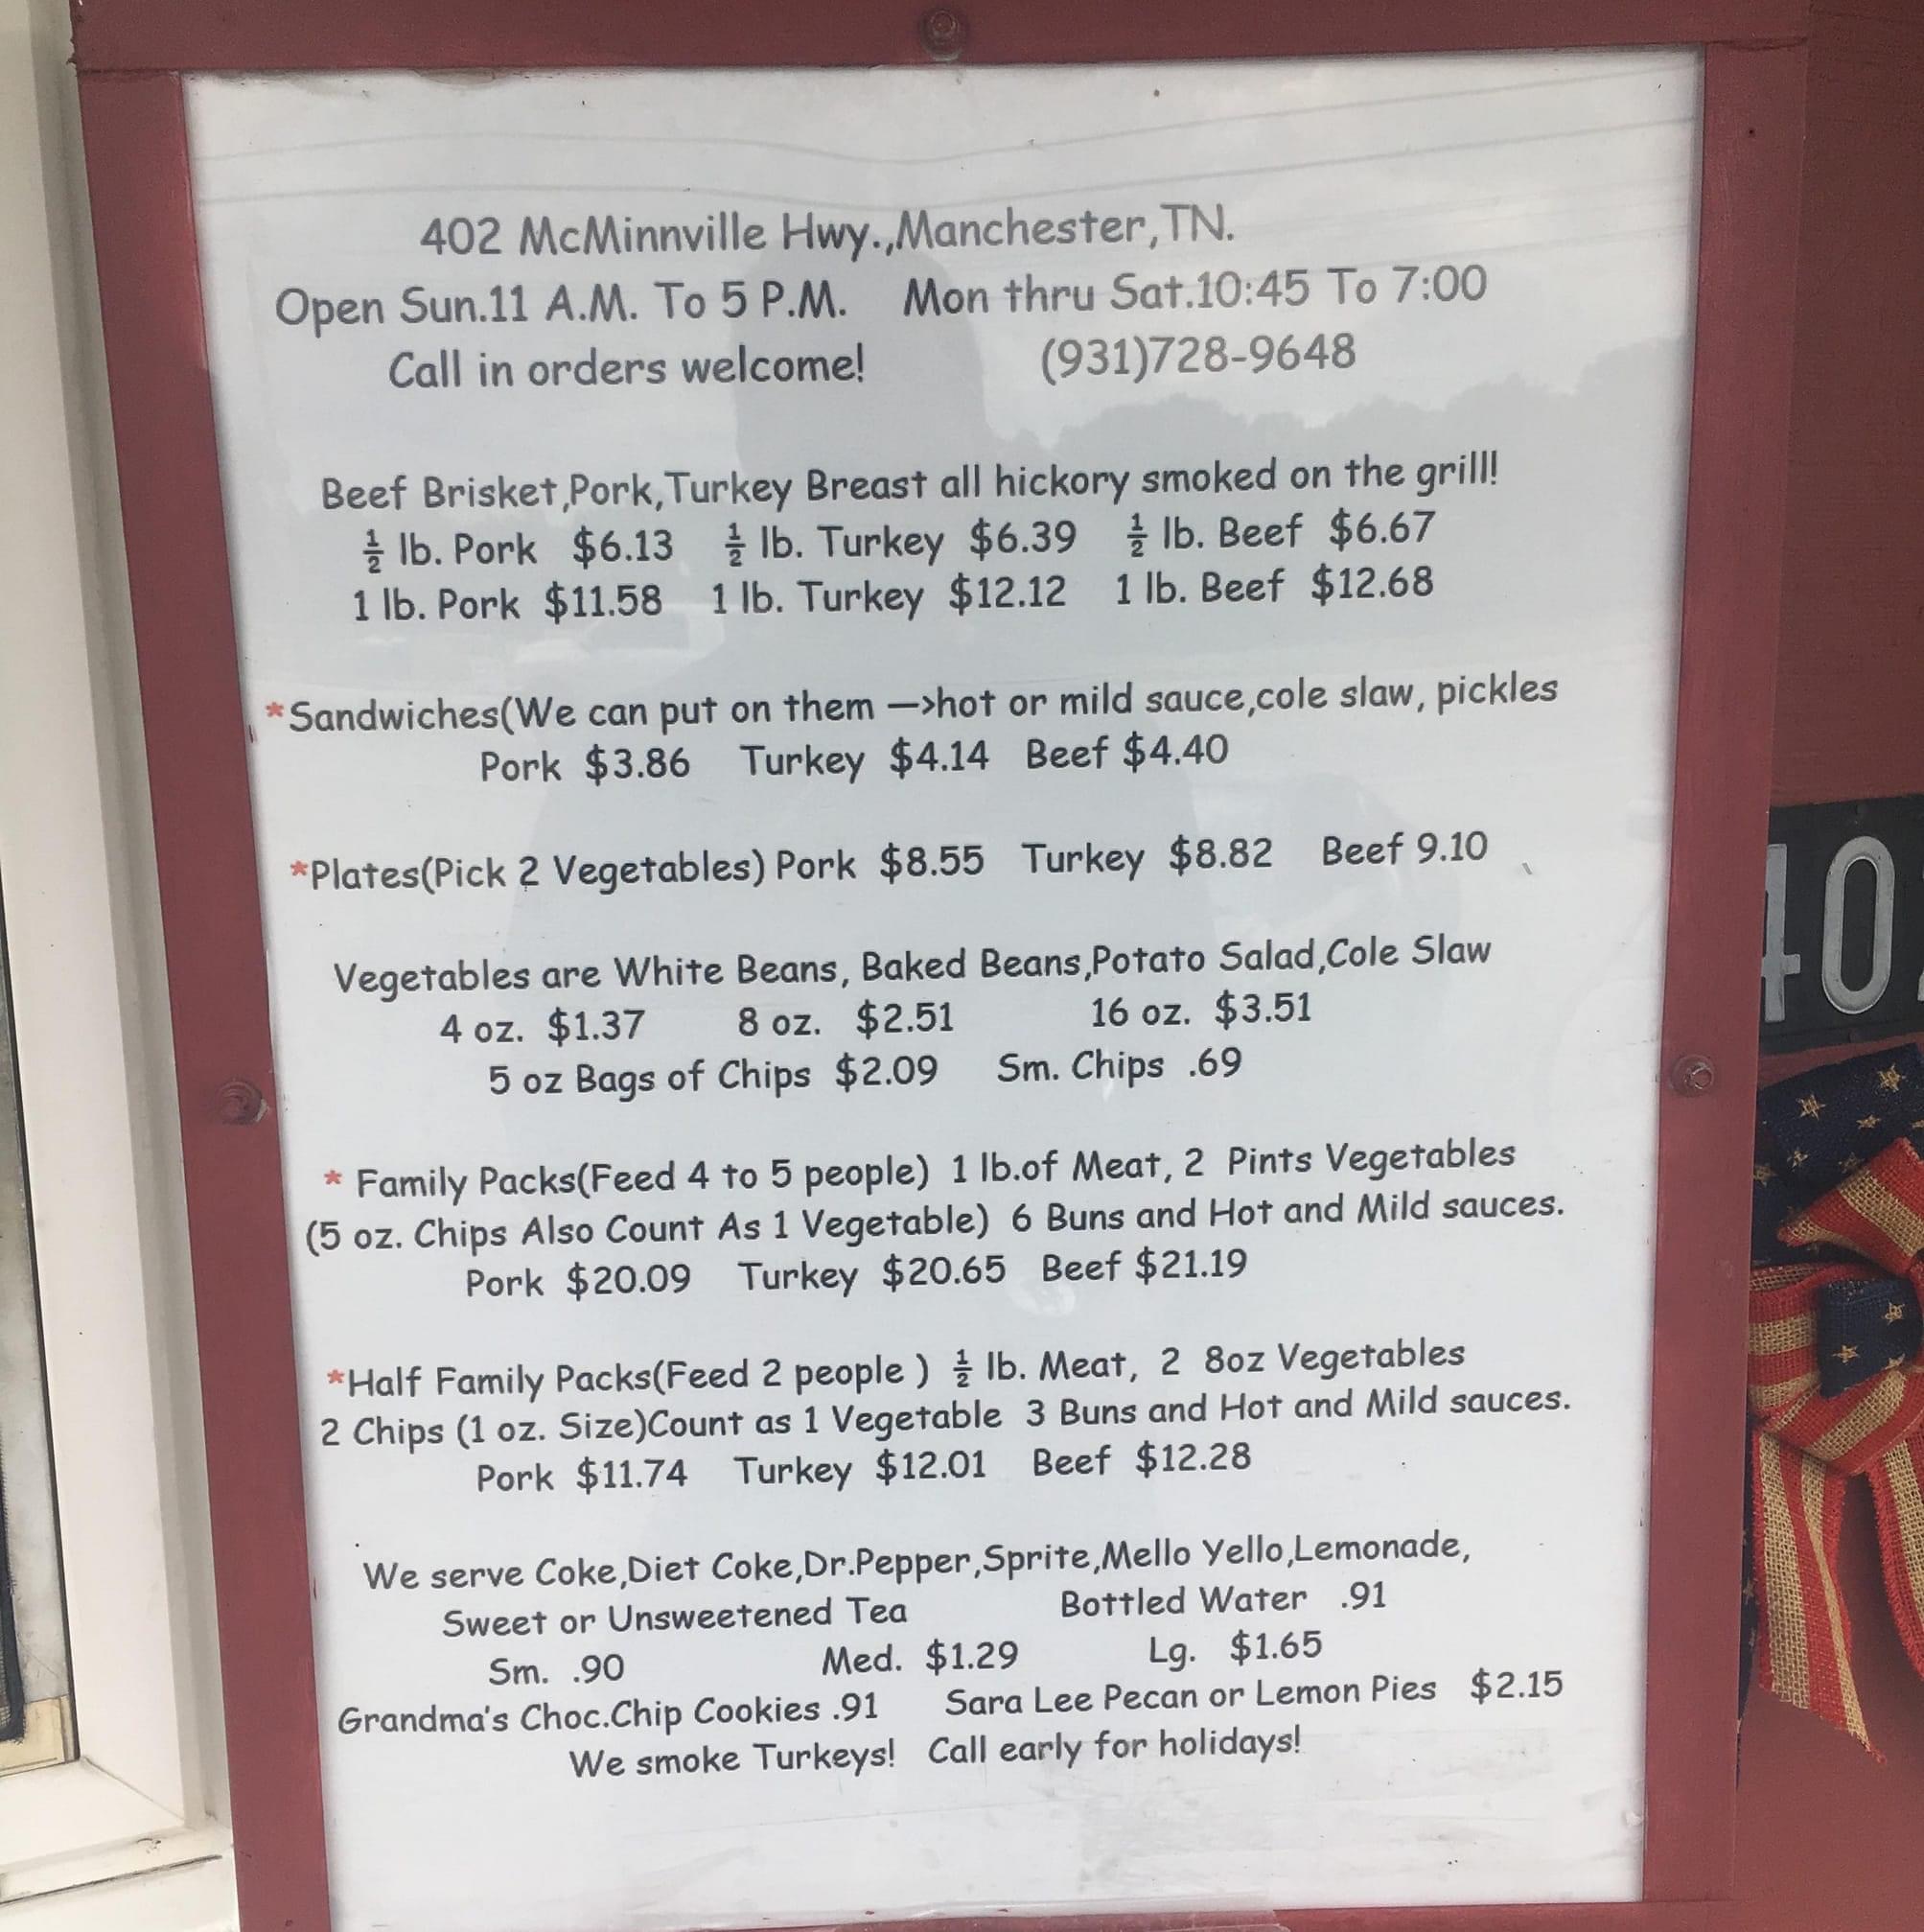 402 McMinnville Hwy.,Manchester,TN.
Open Sun.11 A.M. To 5 P.M. Mon thru Sat.10:45 To 7:00
Call in orders welcome! (931)728-9648
Beef Brisket,Pork,Turkey Breast all hickory smoked on the grill!
½ lb. Pork $6.13 ½ lb. Turkey $6.39 ½ lb. Beef $6.67
1 lb. Pork $11.58 1 lb. Turkey $12.12 1 lb. Beef $12.68
*Sandwiches(We can put on them —>hot or mild sauce,cole slaw, pickles
Pork $3.86 Turkey $4.14 Beef $4.40
*Plates(Pick 2 Vegetables) Pork $8.55 Turkey $8.82 Beef 9.10
Vegetables are White Beans, Baked Beans,Potato Salad,Cole Slaw
4 oz. $1.37 8 oz. $2.51 16 oz. $3.51
5 oz Bags of Chips $2.09 Sm. Chips .69
* Family Packs(Feed 4 to 5 people) 1 lb.of Meat, 2 Pints Vegetables
(5 oz. Chips Also Count As 1 Vegetable) 6 Buns and Hot and Mild sauces.
Pork $20.09 Turkey $20.65 Beef $21.19
*Half Family Packs(Feed 2 people ) ½ lb. Meat, 2 8oz Vegetables
2 Chips (1 oz. Size)Count as 1 Vegetable 3 Buns and Hot and Mild sauces.
Pork $11.74 Turkey $12.01 Beef $12.28
We serve Coke,Diet Coke,Dr.Pepper,Sprite,Mello Yello,Lemonade,
Sweet or Unsweetened Tea Bottled Water .91
Sm. .90 Med. $1.29 Lg. $1.65
Grandma's Choc.Chip Cookies .91 Sara Lee Pecan or Lemon Pies $2.15
We smoke Turkeys! Call early for holidays!
40